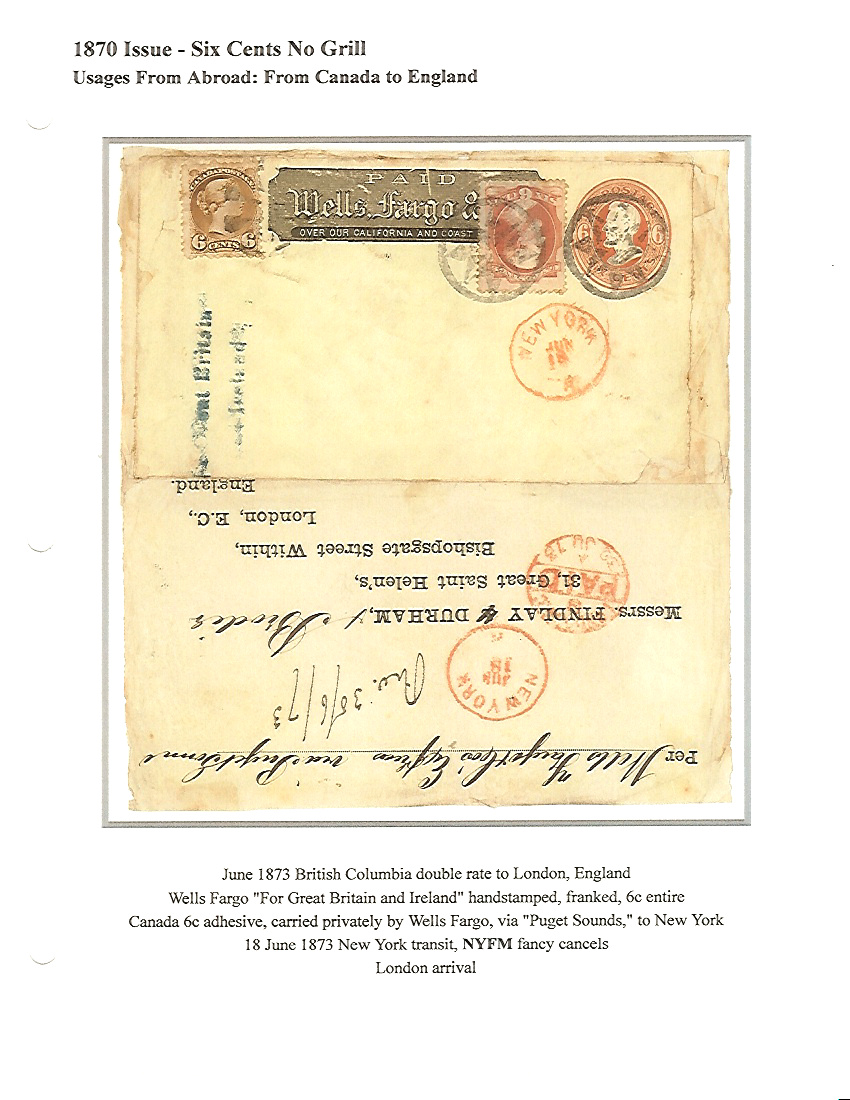 1870 Issue - Six Cents No Grill
Usages From Abroad: From Canada to England
PAID
Wells, Fargo &
OVER OUR CALIFORNIA AND COAST
6 CENTS 6
6
POSTAGE
6 6
NEW YORK
JUN
18
Great Britain
and Ireland
England.
London, E.C.,
Bishopsgate Street Within,
31, Great Saint Helen's,
PAID
Messrs. FINDLAY & DURHAM, & Brodie
NEW YORK
JUN
18
Rec. 30/6/73
Per Wells Fargo & Co's Express via Puget Sound
June 1873 British Columbia double rate to London, England
Wells Fargo "For Great Britain and Ireland" handstamped, franked, 6c entire
Canada 6c adhesive, carried privately by Wells Fargo, via "Puget Sounds," to New York
18 June 1873 New York transit, NYFM fancy cancels
London arrival